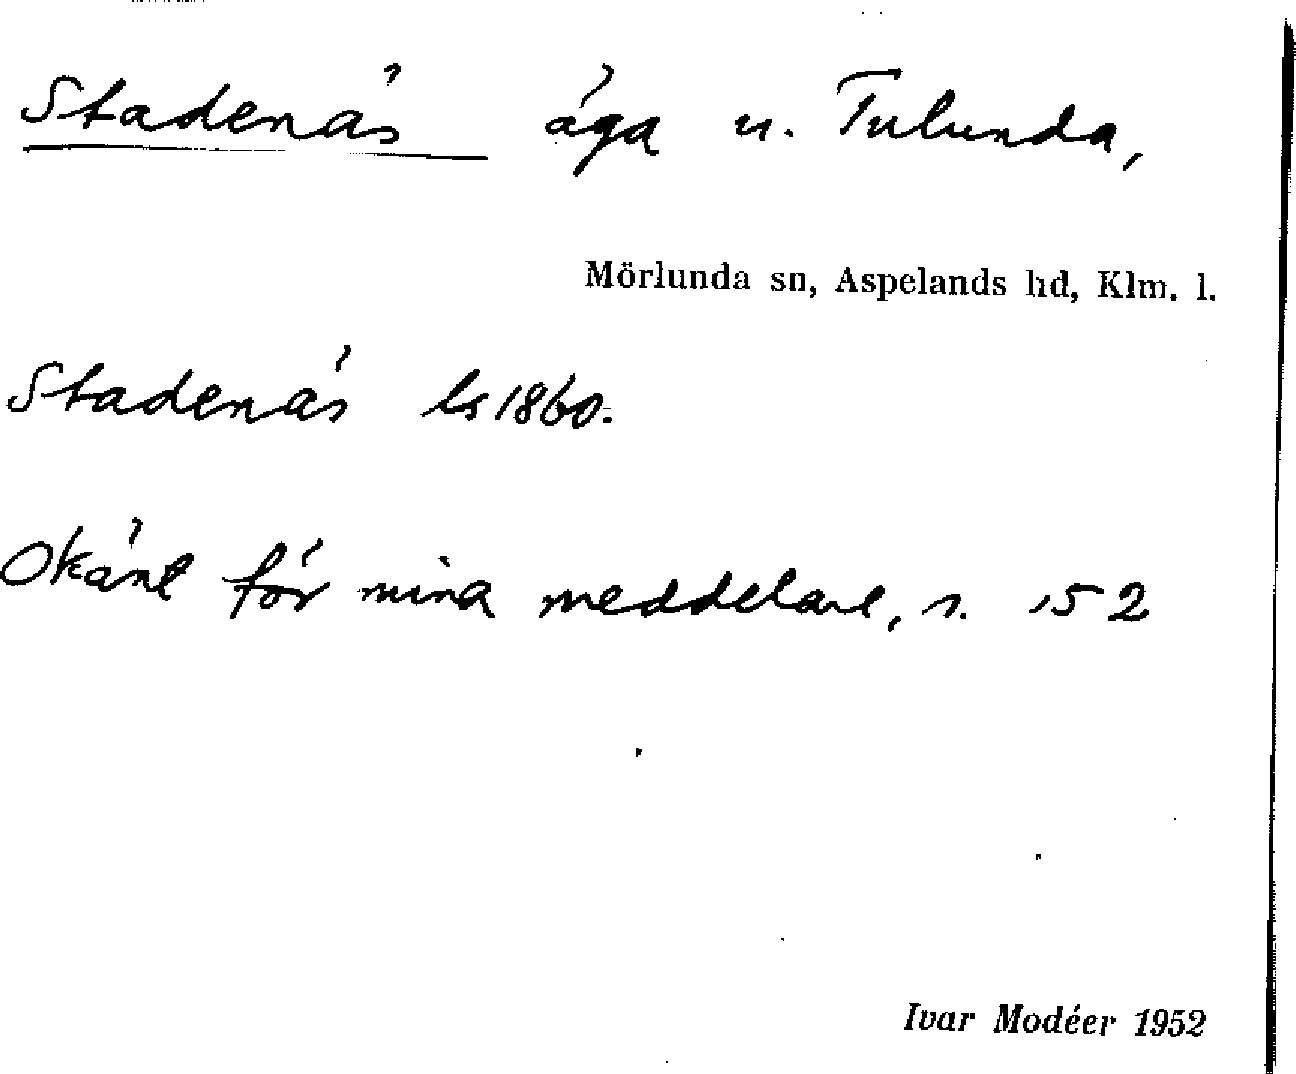 Stadenäs äga u. Tulunda,
Mörlunda sn, Aspelands hd, Klm. l.
Stadenäs ls 1860.
Okänt för mina meddelare, s. 152
Ivar Modéer 1952